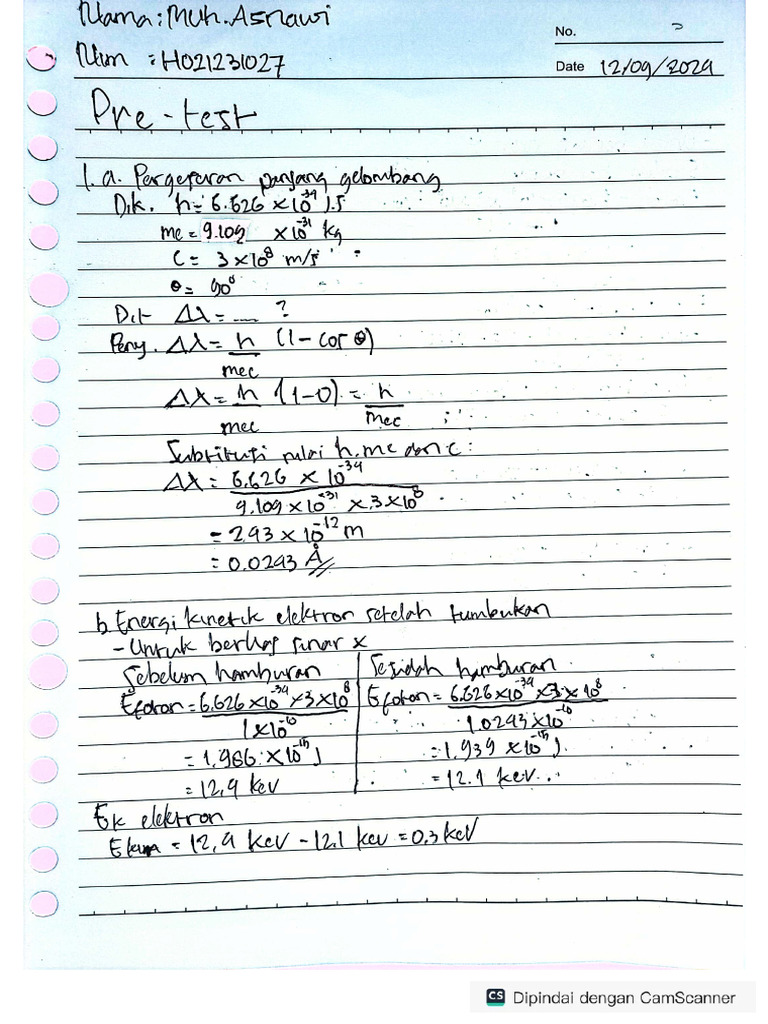 Nama : Muh. Asnawi
No.
Nim : H021231027
Date 12/09/2024
Pre-test
1. a. Pergeseran panjang gelombang
Dik. h = 6.626 × 10⁻³⁴ J.s
me = 9.109 × 10⁻³¹ kg
c = 3 × 10⁸ m/s
θ = 90°
Dit Δλ = .... ?
Peny. Δλ = h (1 - cos θ)
mec
Δλ = h (1-0) = h
mec mec
Substitusi nilai h, me dan c :
Δλ = 6.626 × 10⁻³⁴
9.109 × 10⁻³¹ × 3 × 10⁸
= 2.43 × 10⁻¹² m
= 0.0243 Å //
b. Energi kinetik elektron setelah tumbukan
- Untuk berkas sinar x
Sebelum hamburan
Efoton = 6.626 × 10⁻³⁴ × 3 × 10⁸
1 × 10⁻¹⁰
= 1.986 × 10⁻¹⁵ J
= 12,4 keV
Sesudah hamburan
Efoton = 6.626 × 10⁻³⁴ × 3 × 10⁸
1.0243 × 10⁻¹⁰
= 1.939 × 10⁻¹⁵ J
= 12.1 keV
Ek elektron
= 12,4 keV - 12.1 keV = 0,3 keV
CS Dipindai dengan CamScanner